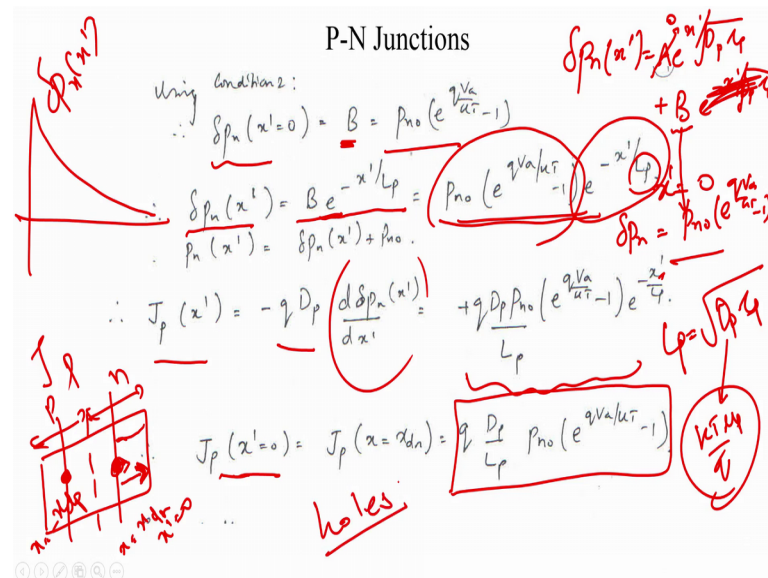 P-N Junctions
δpₙ(x') = A e^{x'/√(Dₚ τₚ)}
+ B
Using condition 2:
∴ δpₙ(x'=0) = B = pₙₒ(e^{qVa/kT} - 1)
∴ δpₙ(x') = B e^{-x'/Lₚ} = pₙₒ(e^{qVa/kT} - 1) e^{-x'/Lₚ}
pₙ(x') = δpₙ(x') + pₙₒ.
δpₙ = pₙₒ(e^{qVa/kT} - 1)
∴ Jₚ(x') = -q Dₚ dδpₙ(x')/dx' = +q Dₚ pₙₒ/Lₚ (e^{qVa/kT} - 1) e^{-x'/Lₚ}.
Lₚ = √(Dₚ τₚ)
kT μₚ/q
Jₚ(x'=0) = Jₚ(x = x_dn) = q Dₚ/Lₚ pₙₒ(e^{qVa/kT} - 1)
holes
δpₙ(x')
P n
x'=0